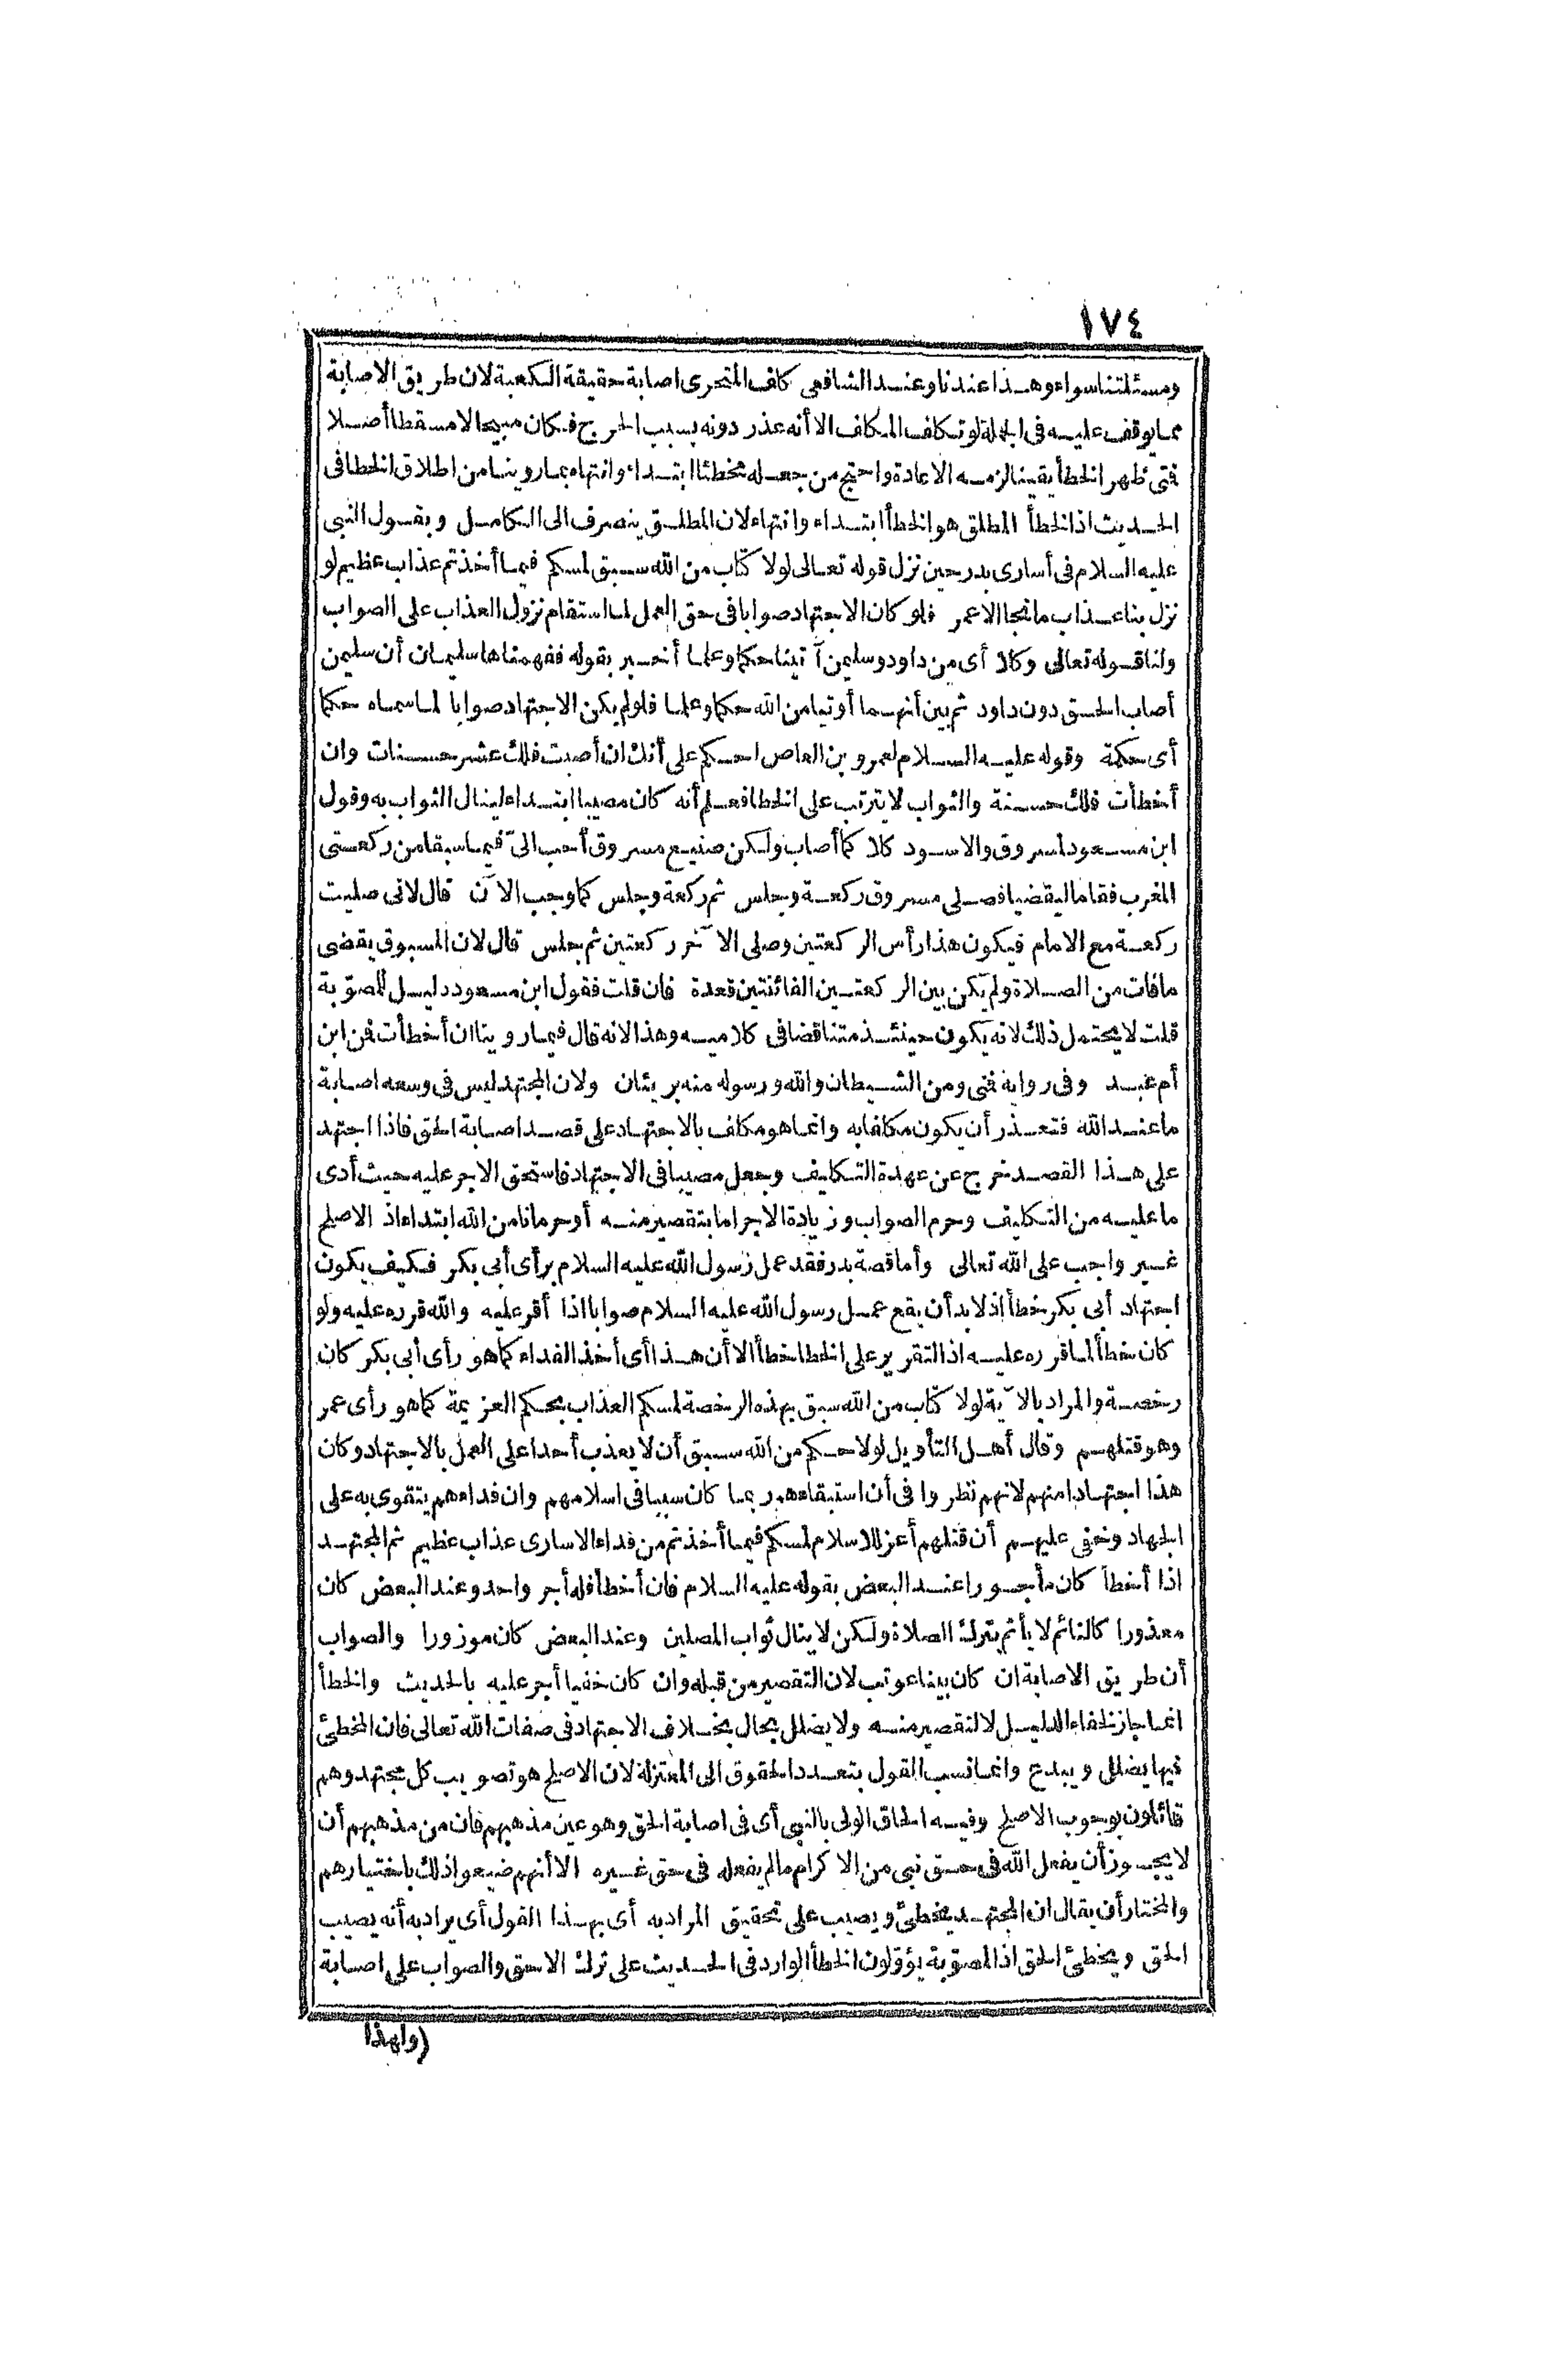 ١٧٤
ومسئلتنا سواء وهذا عندنا وعند الشافعى كلف المتحرى اصابة حقيقة الكعبة لان طريق الاصابة
مما يوقف عليه فى الجملة لو تكلف المكلف الا أنه عذر دونه بسبب الحرج فكان مبيحا لا مسقطا أصلا
فتى ظهر الخطأ يقينا لزمه الاعادة واحتج من جعله مخطئا ابتداء وانتهاء بما روينا من اطلاق الخطا فى
الحديث اذ الخطأ المطلق هو الخطأ ابتداء وانتهاء لان المطلق ينصرف الى الكامل وبقول النبى
عليه السلام فى أسارى بدر حين نزل قوله تعالى لولا كتاب من الله سبق لمسكم فيما أخذتم عذاب عظيم لو
نزل بنا عذاب ما نجا الا عمر فلو كان الاجتهاد صوابا فى حق العمل لما استقام نزول العذاب على الصواب
ولنا قوله تعالى وكلا أى من داود وسليمن آتينا حكما وعلما أخبر بقوله ففهمناها سليمان أن سليمن
أصاب الحق دون داود ثم بين أنهما أوتيا من الله حكما وعلما فلو لم يكن الاجتهاد صوابا لما سماه حكما
أى حكمة وقوله عليه السلام لعمرو بن العاص احكم على أنك ان أصبت فلك عشر حسنات وان
أخطأت فلك حسنة والثواب لا يترتب على الخطا فعلم أنه كان مصيبا ابتداء لينال الثواب به وقول
ابن مسعود لمسروق والاسود كلا كما أصاب ولكن صنيع مسروق أحب الىّ فيما سبقا من ركعتى
المغرب فقاما ليقضيا فصلى مسروق ركعة وجلس ثم ركعة وجلس كما وجب الآن قال لانى صليت
ركعة مع الامام فيكون هذا رأس الركعتين وصلى الآخر ركعتين ثم جلس قال لان المسبوق يقضى
مافات من الصلاة ولم يكن بين الركعتين الفائنتين قعدة فان قلت فقول ابن مسعود دليل للمصوّبة
قلت لا يحتمل ذلك لانه يكون حينئذ متناقضا فى كلاميه وهذا لانه قال فيما روينا ان أخطأت فمن ابن
أم عبد وفى رواية فمنى ومن الشيطان والله ورسوله منه بريئان ولان المجتهد ليس فى وسعه اصابة
ما عند الله فتعذر أن يكون مكلفا به وانما هو مكلف بالاجتهاد على قصد اصابة الحق فاذا اجتهد
على هذا القصد خرج عن عهدة التكليف وجعل مصيبا فى الاجتهاد فاستحق الاجر عليه حيث أدى
ما عليه من التكليف وحرم الصواب وزيادة الاجر اما بتقصير منه أو حرمانا من الله ابتداء اذ الاصلح
غير واجب على الله تعالى وأما قصة بدر فقد عمل رسول الله عليه السلام برأى أبى بكر فكيف يكون
اجتهاد أبى بكر خطأ اذ لا بد أن يقع عمل رسول الله عليه السلام صوابا اذا أقر عليه والله قرره عليه ولو
كان خطأ لما قرره عليه اذ التقرير على الخطا خطأ الا أن هذا أى أخذ الفداء كما هو رأى أبى بكر كان
رخصة والمراد بالآية لولا كتاب من الله سبق بهذه الرخصة لمسكم العذاب بحكم العزيمة كما هو رأى عمر
وهو قتلهم وقال أهل التأويل لولا حكم من الله سبق أن لا يعذب أحدا على العمل بالاجتهاد وكان
هذا اجتهادا منهم لانهم نظروا فى أن استبقاءهم ربما كان سببا فى اسلامهم وان فداءهم يتقوى به على
الجهاد وخفى عليهم أن قتلهم أعز للاسلام لمسكم فيما أخذتم من فداء الاسارى عذاب عظيم ثم المجتهد
اذا أخطأ كان مأجورا عند البعض بقوله عليه السلام فان أخطأ فله أجر واحد وعند البعض كان
معذورا كالنائم لا يأثم بترك الصلاة ولكن لا ينال ثواب المصلين وعند البعض كان موزورا والصواب
أن طريق الاصابة ان كان بينا عوتب لان التقصير من قبله وان كان خفيا أجر عليه بالحديث والخطأ
انما جاز لخفاء الدليل لا لتقصير منه ولا يضلل بحال بخلاف الاجتهاد فى صفات الله تعالى فان المخطئ
فيها يضلل ويبدع وانما نسب القول بتعدد الحقوق الى المعتزلة لان الاصلح هو تصويب كل مجتهد وهم
قائلون بوجوب الاصلح وفيه الحاق الولى بالنبى أى فى اصابة الحق وهو عين مذهبهم فان من مذهبهم أن
لا يجوز أن يفعل الله فى حق نبى من الاكرام مالم يفعله فى حق غيره الا أنهم ضيعوا ذلك باختيارهم
والمختار أن يقال ان المجتهد يخطئ ويصيب على تحقيق المراد به أى بهذا القول أى يراد به أنه يصيب
الحق ويخطئ الحق اذ المصوّبة يؤوّلون الخطأ الوارد فى الحديث على ترك الاحق والصواب على اصابة
(ولهذا